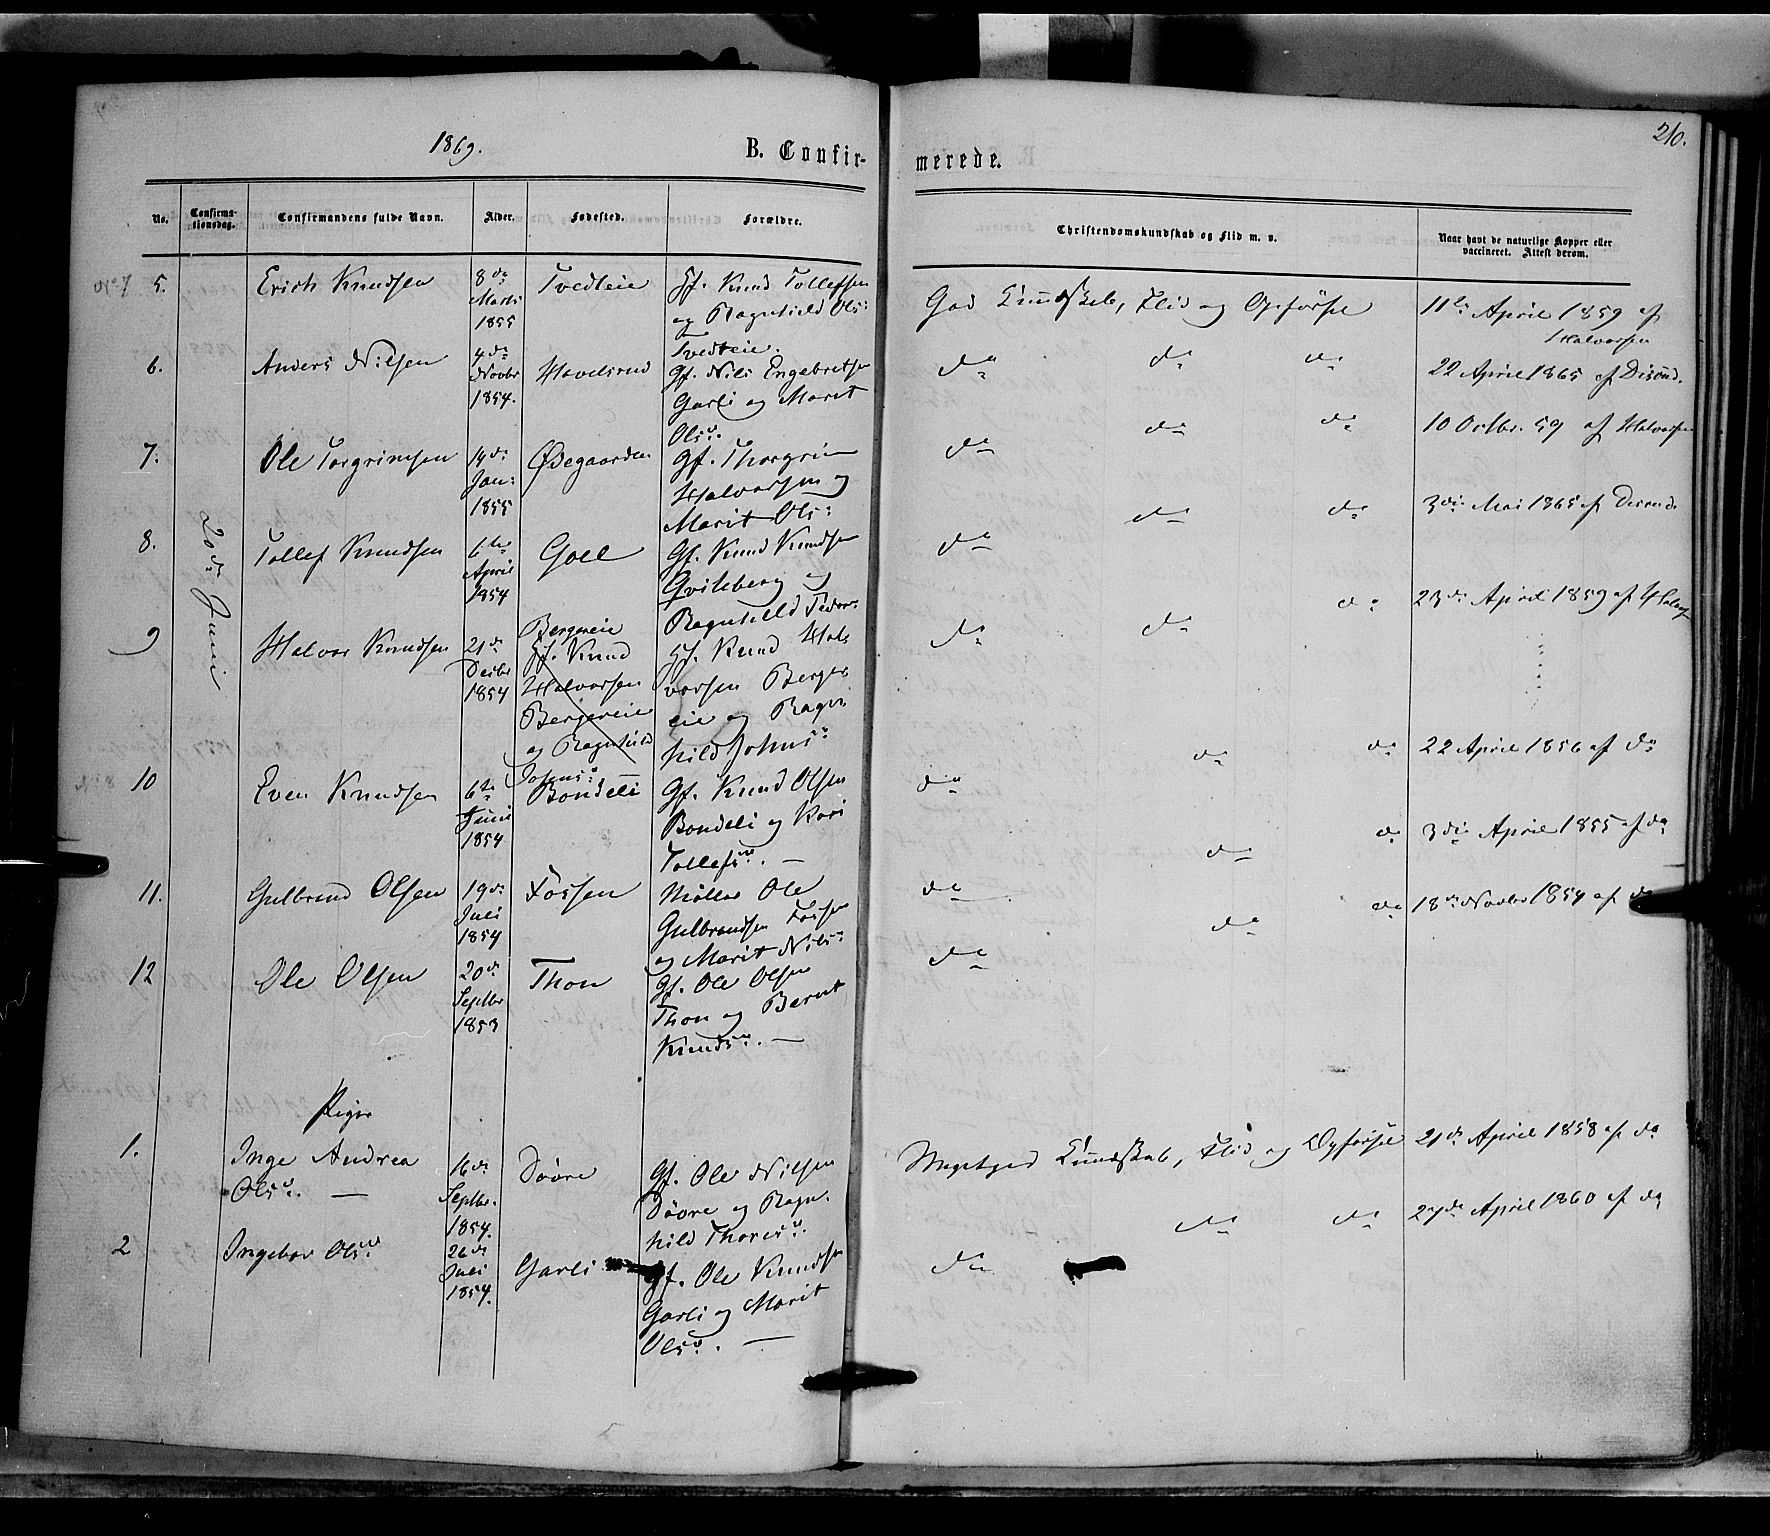 1869.
B. Confir-
merede.
210.
No.
Confirma-
tionsdag.
Confirmandens fulde Navn.
Alder.
Fødested.
Forældre.
Christendomskundskab og Flid m. v.
Naar havt de naturlige Kopper eller
vaccineret. Attest derom.
20de Juni
5. Erich Knudsen
8de
Marts
1855
Tvedteie
Hf. Knud Tollefsen
og Ragnhild Ols:
Tvedteie.
God Kundskab, Flid og Opførsel
11te April 1859 af
Halvorsen
6. Anders Nilsen
4de
Novbr
1854.
Havelsrud
Gf. Nils Engebretsen
Garli og Marit
Olsd.
do do do
22 April 1865 af Disrud.
7. Ole Torgrimsen
14de
Jan:
1855
Ødegaarden
Gf. Thorgrim
Halvorsen og
Marit Ols:
do do do
10 Octbr. 59 af Halvorsen
8. Tollef Knudsen
6te
April
1854
Goel
Gf. Knud Knudsen
Qvileberg og
Ragnhild
do do do
3die Mai 1865 af Disrud.
9 Halvor Knudsen
21de
Decbr
1854
Bergereie
Hf. Knud
Halvorsen
Bergereie
og Ragnhild
Johnsd:
Hf. Knud Hal-
vorsen Berger
eie og Ragn
hild Johnsd
do do do
23de April 1859 af Halvors
10 Even Knudsen
6te
Juni
1854
Bondeli
Gf. Knud Olsen
Bondeli og Kari
Tollefsd. —
do do do
22 April 1856 af do
11. Gulbrand Olsen
19de
Juli
1854
Fossen
Møller Ole
Gulbrandsen Fossen
og Marit Nils:
do do do
3die April 1855 af do
12 Ole Olsen
20de
Septbr
1853
Thon
Gf. Ole Olsen
Thon og Berit
Knudsd. —
do do do
18de Novbr 1854 af do
Piger
1. Inge Andrea
Olsd. —
16de
Septbr.
1854.
Døvre
Gf. Ole Nilsen
Døvre og Ragn-
hild Thoresd.
Megetgod Kundskab, Flid og Opførsel
21de April 1858 af do
2 Ingebor Olsd
26de
Juli
1854.
Garli
Gf. Ole Knudsen
Garli og Marit
Olsd. —
do do do
27de April 1860 af do